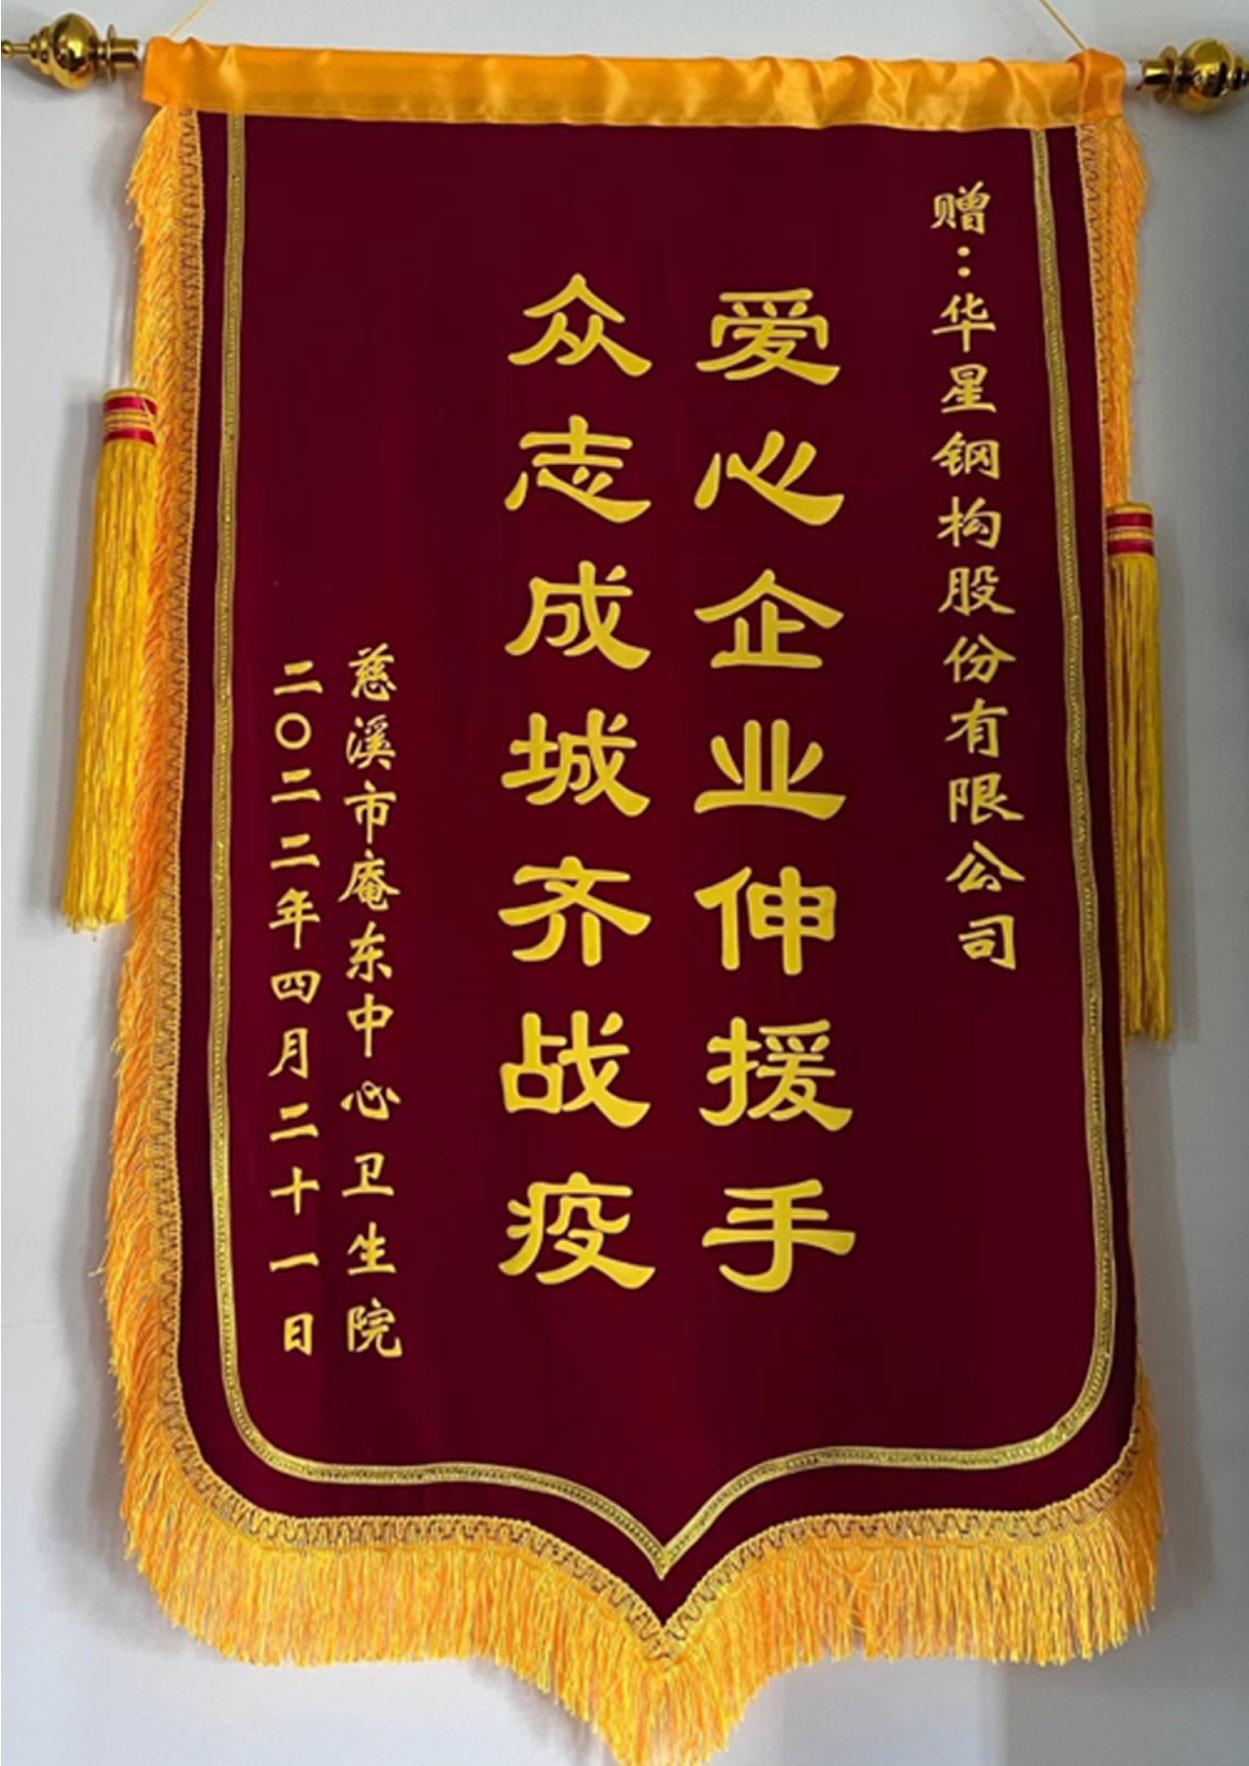 赠：华星钢构股份有限公司
爱心企业伸援手
众志成城齐战疫
慈溪市庵东中心卫生院
二〇二二年四月二十一日